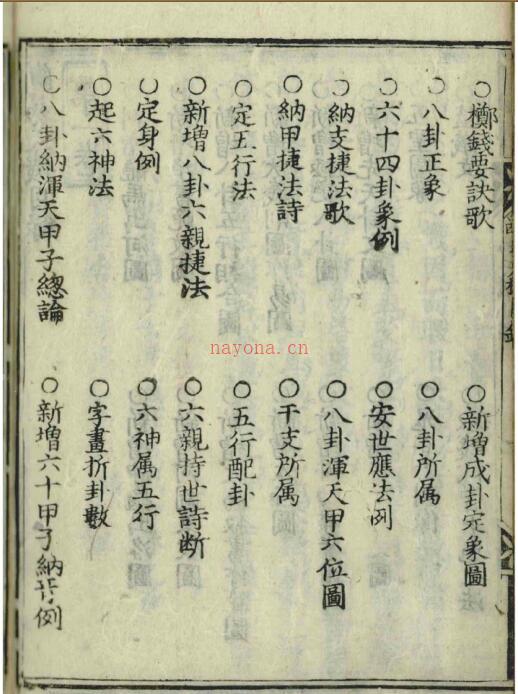 ○擲錢要訣歌 ○新增成卦定象圖
○八卦正象 ○八卦所属
○六十四卦象例 ○安世應法例
○納支捷法歌 ○八卦渾天甲六位圖
○納甲捷法詩 ○干支所属
○定五行法 ○五行配卦
○新增八卦六親捷法 ○六親持世詩断
○定身例 ○六神属五行
○起六神法 ○字畫折卦數
○八卦納渾天甲子總論 ○新增六十甲子納音例
nayona.cn